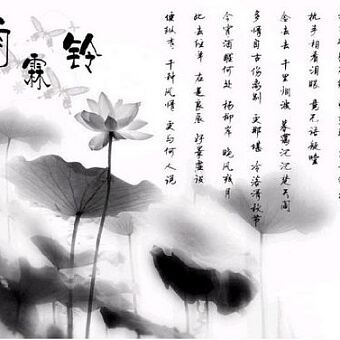 雨霖铃
执手相看泪眼 竟无语凝噎
念去去 千里烟波 暮霭沉沉楚天阔
多情自古伤离别 更那堪 冷落清秋节
今宵酒醒何处 杨柳岸 晓风残月
此去经年 应是良辰 好景虚设
便纵有 千种风情 更与何人说